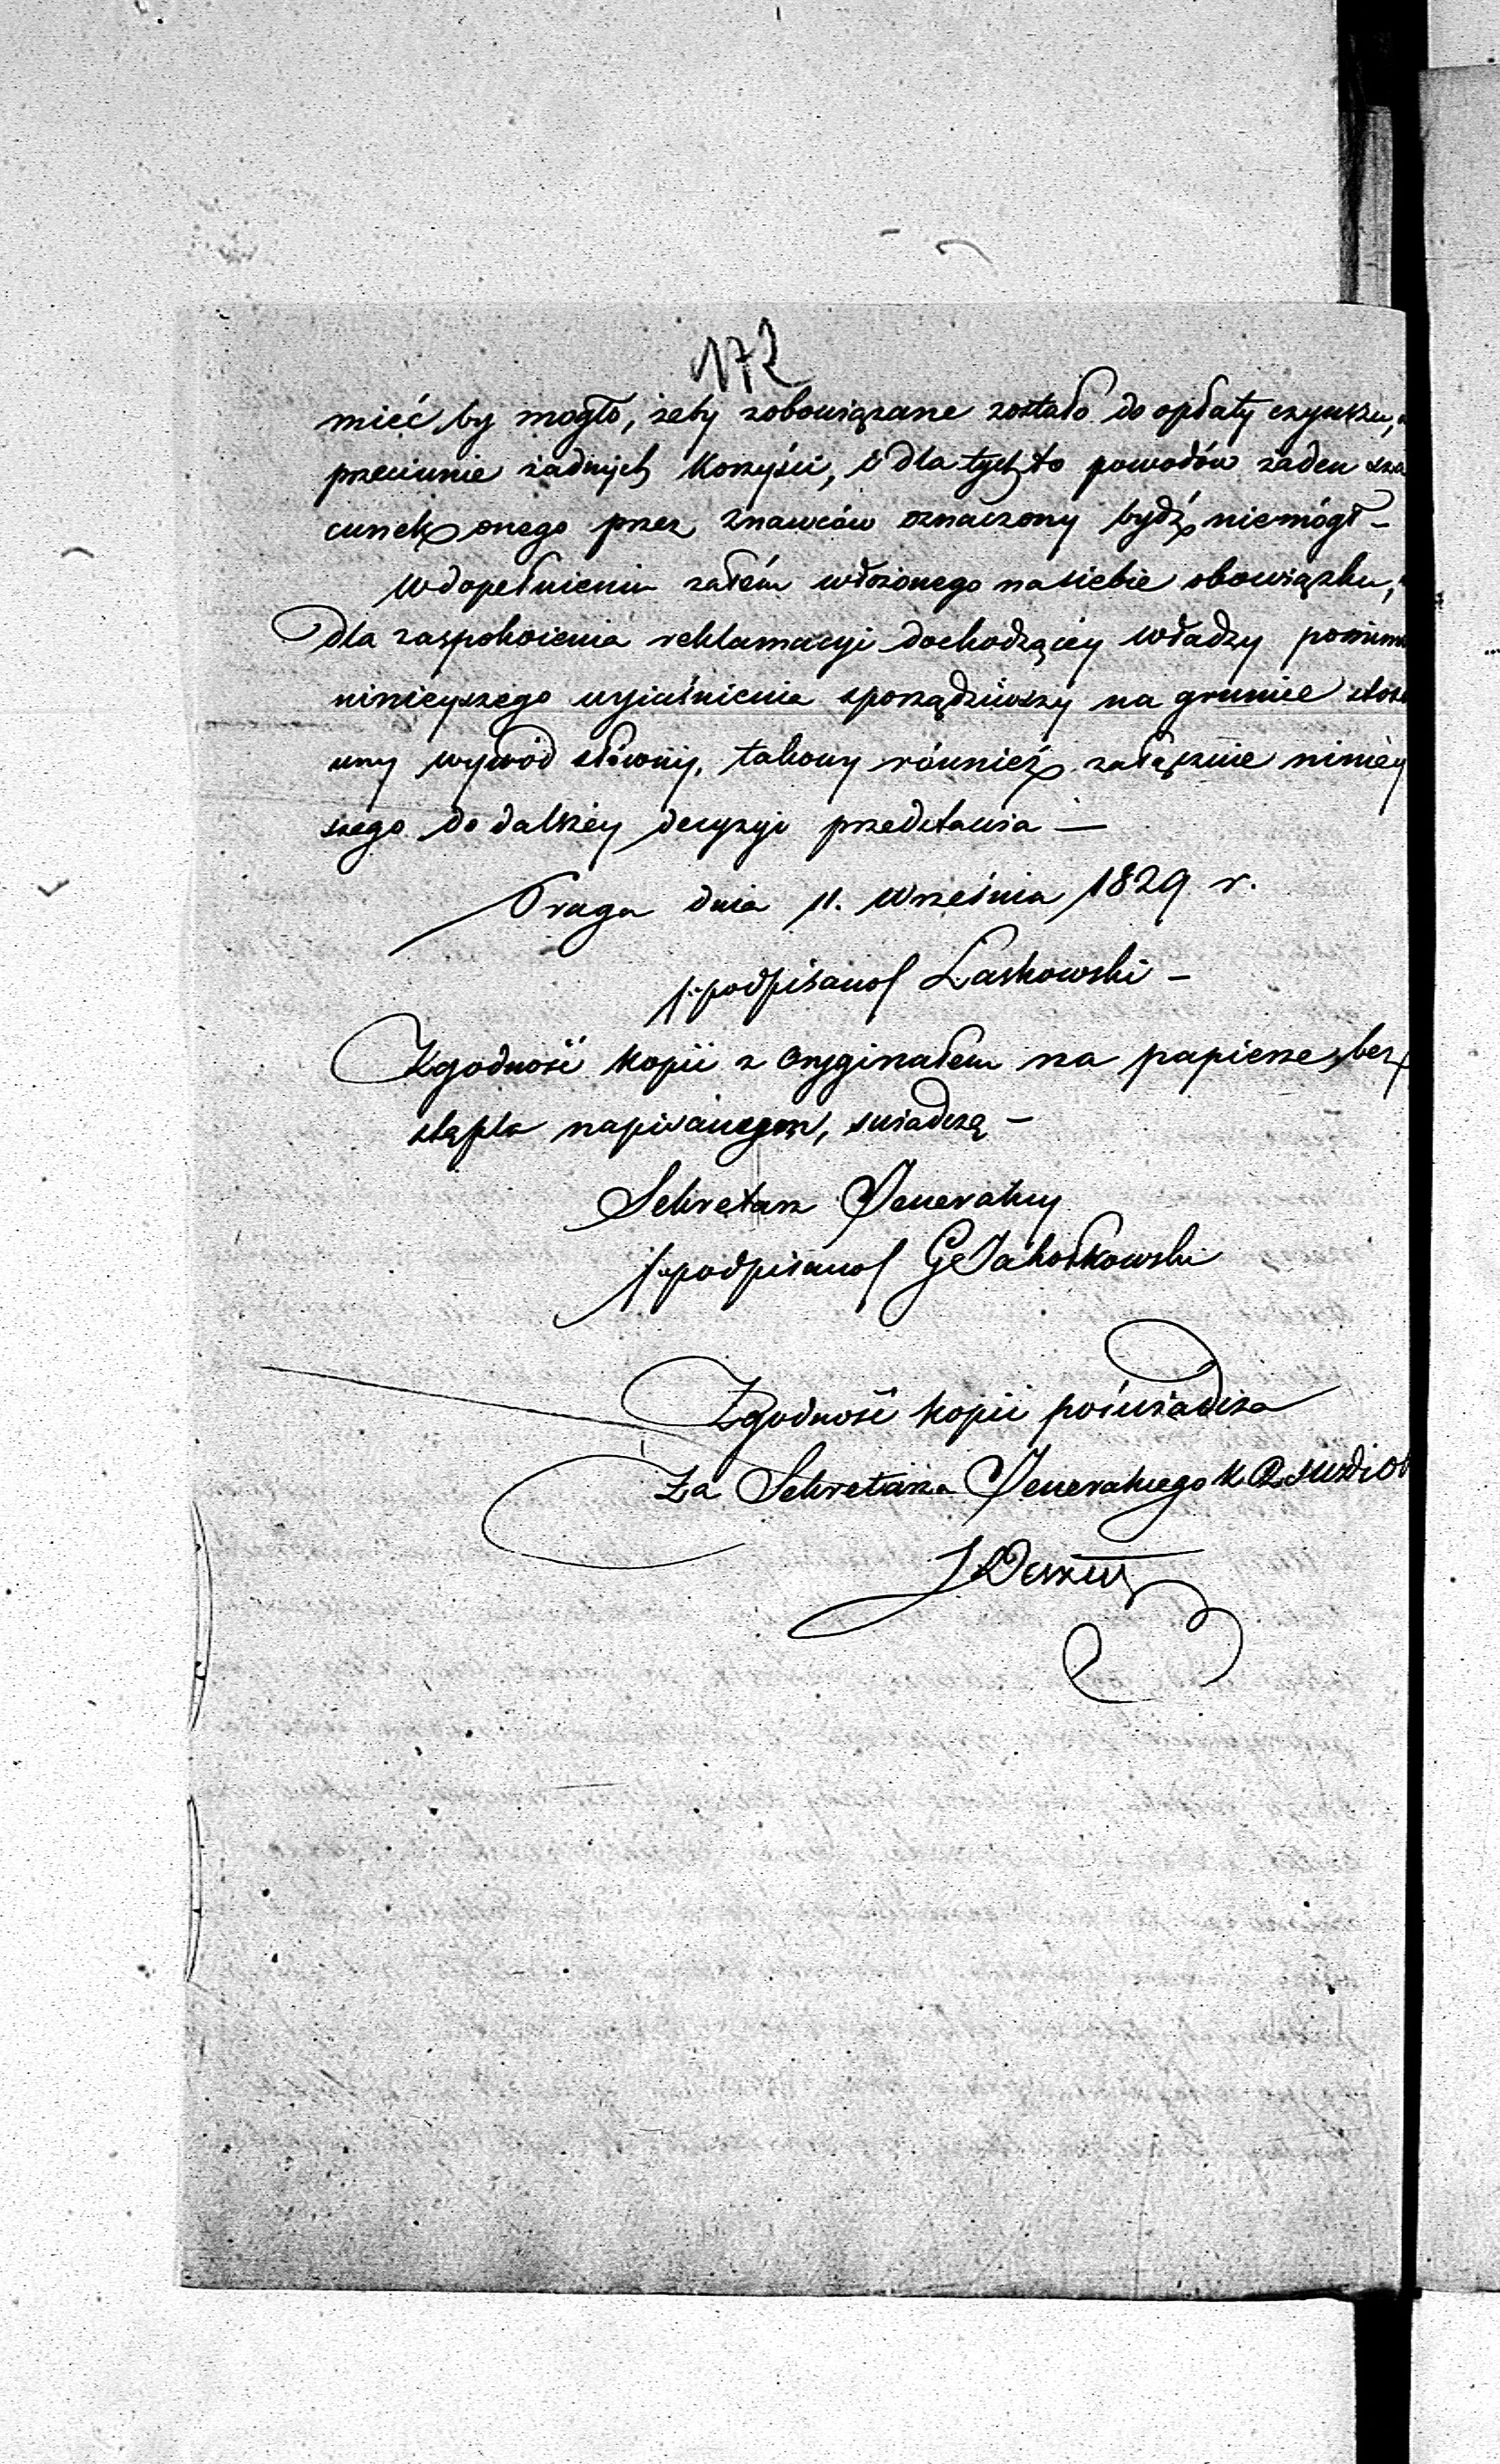 172
mieć by mogło, żeby zobowiązane zostało do opłaty czynszu,
przeciwnie żadnych korzyści, i dla tych to powodów żaden sza
cunek onego przez znawców oznaczony bydź niemógł –
W dopełnieniu zatém włożonego na siebie obowiązku,
dla zaspokoienia reklamacyi dochodzącéy władzy
ninieyszego wyiaśnienia sporządziwszy na gruncie stoso
wny wywód słowny, takowy również załącznie niniéy
szego do dalszéy decyzyi przedstawia —
Praga dnia 11. Września 1829 r.
/:podpisano/ Laskowski –
Zgodność kopii z oryginałem na papierze bez
stępla napisanegom, świadczą –
Sekretarz Jeneralny
/:podpisano/ G Jahołkowski
Zgodność kopii poświadcza
Za Sekretarza Jeneralnego K.